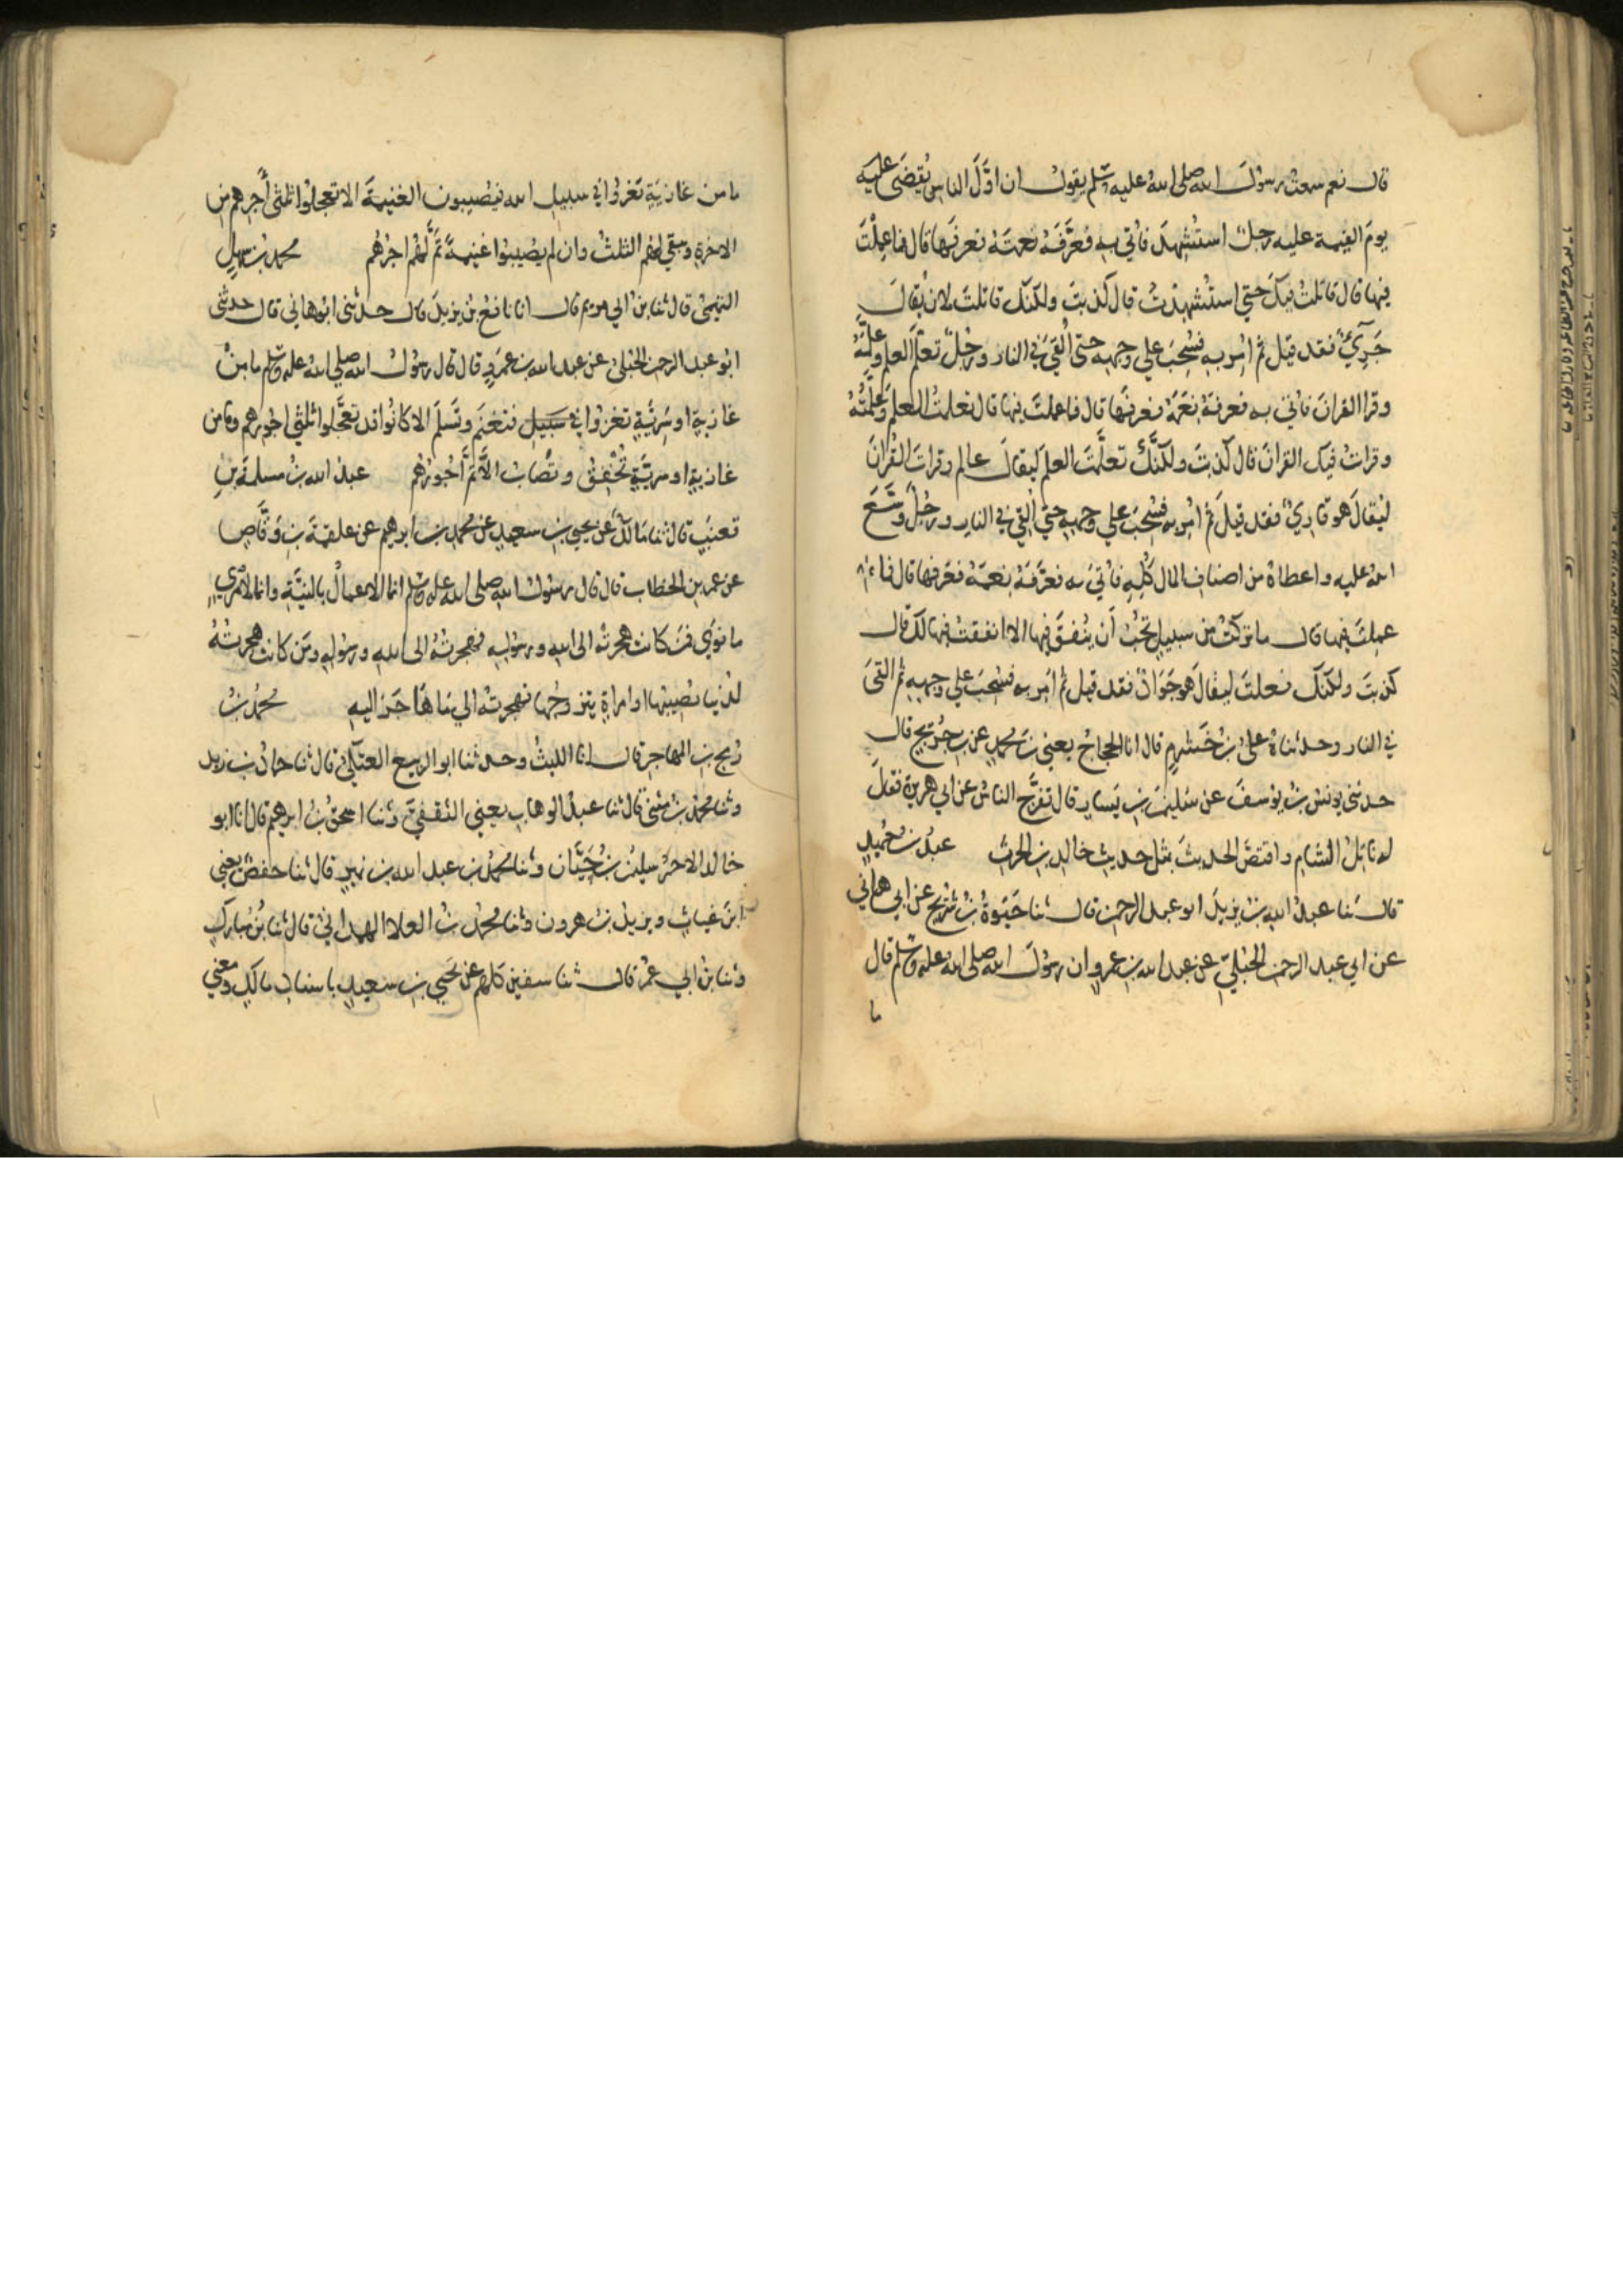 قال نعم سمعت رسول الله صلى الله عليه وسلم يقول ان اوّل الناس يُقضَى عليه
يوم القيمة عليه رجل استُشهِدَ فاُتي به فعَرَّفَهُ نعمتَهُ فعرفَها قال فما عملتَ
فيها قال قاتلتُ فيك حتي استُشهِدتُ قال كذبتَ ولكنّك قاتلتَ لان يُقالَ
جَرِيٌ فقد قيل ثم اُمِر به فسُحِبَ علي وجهه حتي اُلقيَ في النار ورجُلٌ تعلّم العلم وعلّمَهُ
وقرا القرانَ فاتي به فعرفهُ نِعَمَهُ فعرفها قال فما عملتَ فيها قال تعلمتُ العلمَ وعلّمتُهُ
وقراتُ فيك القرانَ قال كذبتَ ولكنّك تعلّمتَ العلمَ ليقالَ عالم وقراتَ القُرانَ
ليُقالَ هو قاريٌ فقد قيلَ ثم اُمِر به فسُحِبَ علي وجهِهِ حتي اُلقي في النار ورجُلٌ وسَّعَ
اللهُ عليه واعطاهُ من اصناف المال كُلِّهِ فاُتيَ به فعَرَّفَهُ نِعَمَهُ فعرفها قال فما
عملتَ فيها قال ما تركتُ من سبيل تُحِبُّ أن يُنفقَ فيها الا انفقتُ فيها لك قال
كذبتَ ولكنّك فعلتَ ليقالَ هو جَوَادٌ فقد قيل ثم اُمر به فسُحِبَ علي وجهِهِ ثم القيَ
في النار وحدثناهُ عليُ بنُ خَشرَمٍ قال انا الحجاجُ يعني بن محمدٍ عن بن جُرَيج قال
حدثني يونس بنُ يوسفَ عن سُليمن بن يَسارٍ قال تفرَّج الناسُ عن ابي هريرة فقال
له ناتلُ الشام واقتصَّ الحديثَ بمثل حديث خالد بن الحرث عبدُ بنُ حُميدٍ
قال ثنا عبدُ الله بنُ يزيدَ ابو عبد الرحمن قال ثنا حَيوَةُ بنُ شُرَيح عن ابي هاني
عن ابي عبد الرحمن الحُبُليِّ عن عبد الله بن عمرو ان رسولَ الله صلى الله عليه وسلم قال
ما
ما من غازيَةٍ تغزُوا في سبيل الله فيُصيبون الغنيمةَ الا تعجلُوا ثلثي أجرهم من
الاخرةِ ويبقي لهُم الثلثُ وان لم يُصيبُوا غنيمةً تَمَّ لهُم اجرُهُم محمدُ بنُ سهلٍ
التيميُّ قال ثنا بنُ ابي مريم قال انا نافعُ بنُ يزيدَ قال حدثني ابُو هاني قال حدثني
ابُو عبد الرحمن الحُبُليُّ عن عبد الله بن عمرو قال قال رسولُ الله صلى الله عليه وسلم ما من
غازيةٍ او سَرِيَّةٍ تغزُوا في سَبيل فتغنَم وتَسلَم الا كانُوا قد تعجَّلوا ثلثي اجُورهم وما من
غازيةٍ او سريةٍ تُخفِقُ وتُصابُ الا تَمَّ أُجُورُهُم عبدُ الله بنُ مسلمة بن
قعنبٍ قال ثنا مالكٌ عن يحيي بن سعيدٍ عن محمد بن ابرهيم عن علقمة بن وَقَّاصٍ
عن عمر بن الخطاب قال قال رسولُ الله صلى الله عليه وسلم انما الاعمالُ بالنيَّةِ وانما لامري
ما نوَي فمن كانت هجرتُه الى الله ورسُوله فهجرتُهُ الى الله ورسُولِهِ ومَن كانت هجرتُهُ
لدُنيا يُصيبُها او امراةٍ يتزوجُها فهجرتُهُ الي مَا هَاجَرَ اليهِ محمدُ بنُ
رُمح بن المهاجر قال انا الليثُ وحدثنا ابو الربيع العتكي قال ثنا حمادُ بن زيد
وثنا محمدُ بنُ مثني قال ثنا عبدُ الوهاب يعني الثقفيَّ وثنا اسحقُ بنُ ابرهيم قال انا ابو
خالد الاحمر سليمن بن حَيَّان وثنا محمدُ بن عبد الله بن نميرٍ قال ثنا حفصٌ يعني
ابن غياثٍ ويزيدُ بنُ هرون وثنا محمدُ بنُ العلا الهمداني قال ثنا بنُ مُبارَكٍ
وثنا بنُ ابي عمر قال ثنا سفين كلهم عن يَحيي بن سعيدٍ باسناد مالكٍ ومعني